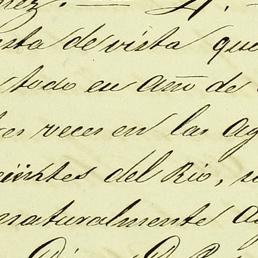 sta de vista que
todo en año de
res veces en las ag
del Rio, s
naturalmente a